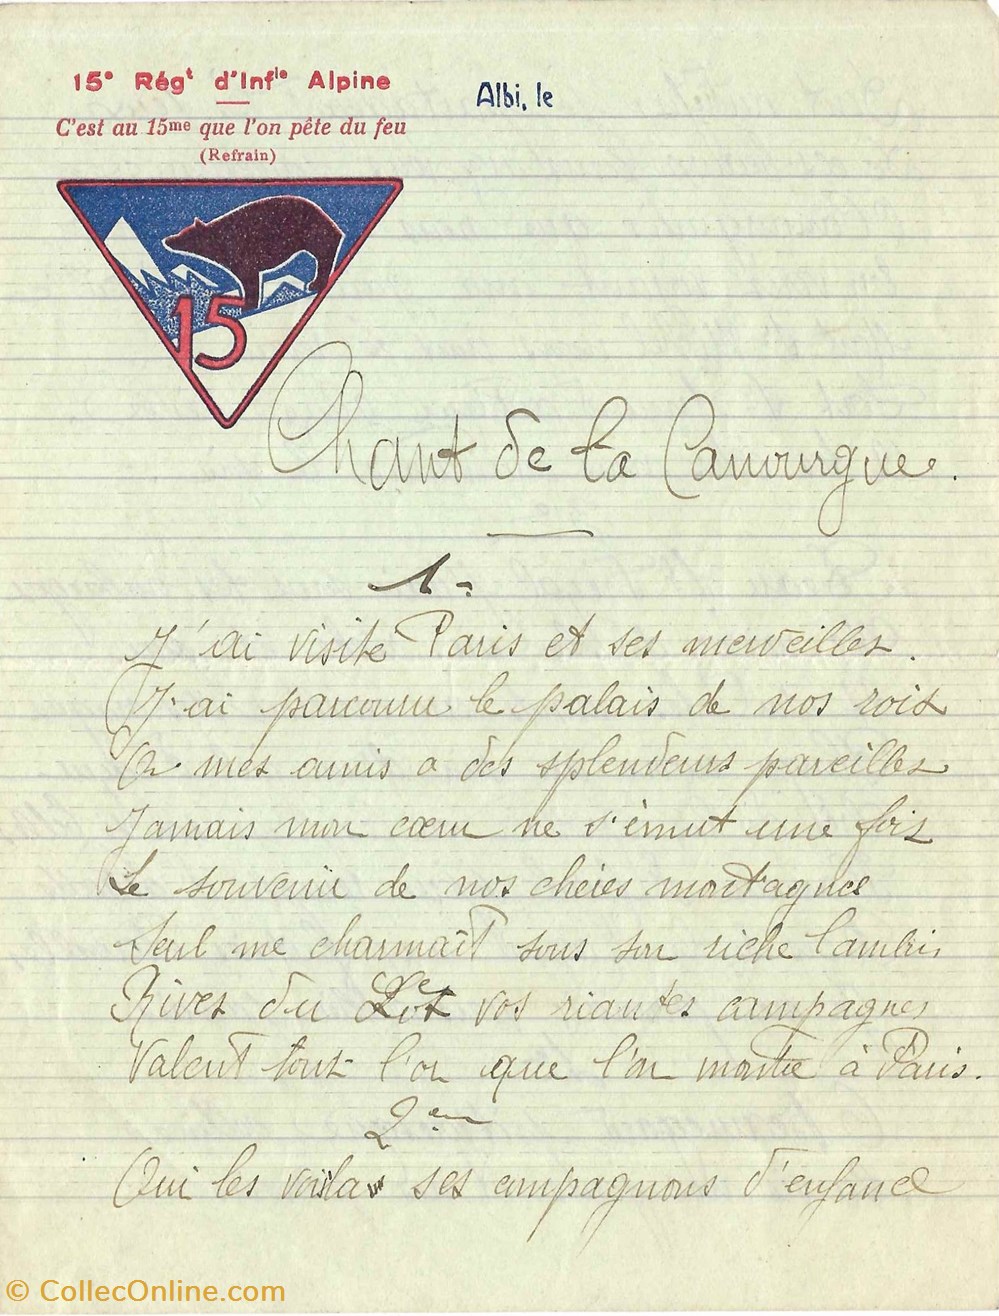 15e Régt d'Infie Alpine
C'est au 15me que l'on pête du feu
(Refrain)
Albi, le
15
Chant de la Canourgue.
1-
J'ai visité Paris et ses merveilles.
J'ai parcouru le palais de nos rois
O mes amis a des splendeurs pareilles
Jamais mon cœur ne s'émut une fois
Le souvenir de nos chères montagnes
Seul me charmait sous son riche lambris
Rives du Lot vos riantes campagnes
Valent tout l'or que l'on montre à Paris.
2em
Oui les voila ses compagnons d'enfance
© CollecOnline.com